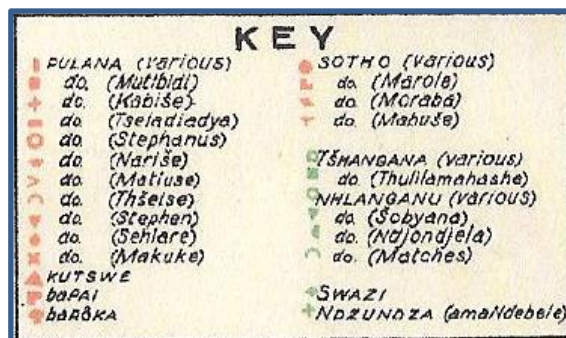 KEY
PULANA (various)
do. (Mutibidi)
do. (Kobiše)
do. (Tseiadiadya)
do. (Stephanus)
do. (Nariše)
do. (Matiuse)
do. (Thšeise)
do. (Stephen)
do. (Sehlare)
do. (Makuke)
KUTSWE
baPAI
baROKA
SOTHO (various)
do. (Marole)
do. (Moraba)
do. (Mabuše)
TŠHANGANA (various)
do. (Thulilamahashe)
NHLANGANU (various)
do. (Šobyana)
do. (Ndjondjela)
do. (Matches)
SWAZI
NDZUNDZA (amaNdebele)